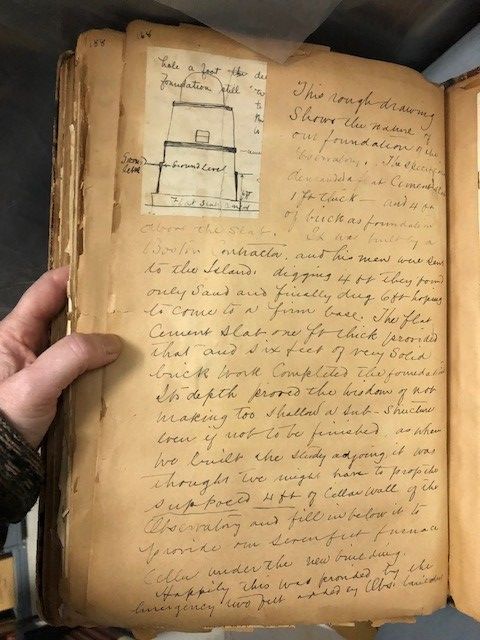 188
168
hole a foot
foundation still
Ground Level
Flat Slab
This rough drawing
Shows the nature of
our foundation of the
Observatory. The Specification
demanded a flat Cement slab
1 ft thick — and 4 ft
of brick as foundation
above the Slab. It was built by a
Boston Contractor, and his men were sent
to the Island: digging 4 ft they found
only Sand and finally dug 6 ft hoping
to come to a firm base. The flat
Cement Slab one ft thick provided
that and six feet of very Solid
brick work Completed the foundation
Its depth proved the wisdom of not
making too Shallow a Sub-Structure
even if not to be finished, as when
we built the Study adjoing, it was
thought we might have to prop the
supposed 4 ft of Cellar wall of the
Observatory and fill in below it to
provide our seven feet furnace
Cellar under the new building.
Happily this was provided by the
emergency two feet added by Obs: builders